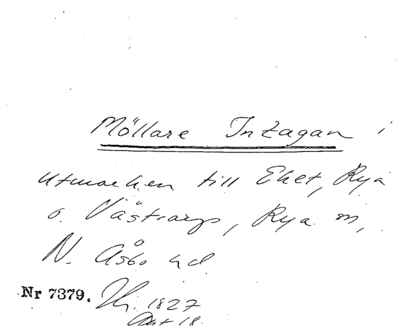 Möllare Intagan i
utmarken till Eket, Rya
o. Västraryp, Rya sn,
N. Åsbo hd.
Nr 7379. 1827
Akt 18.